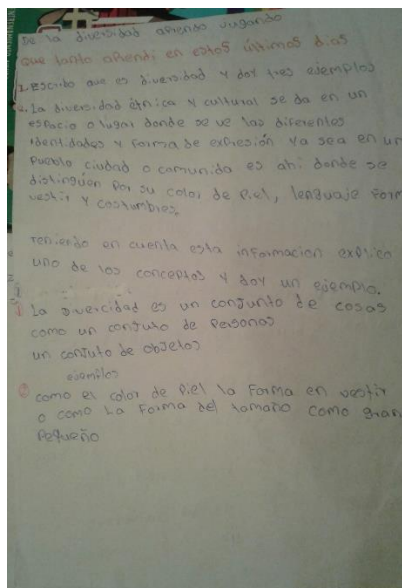 De la diversidad aprendo Jugando
Que tanto aprendi en estos últimos dias
1. escribo que es diversidad y doy tres ejemplos
2. La diversidad étnica y cultural se da en un
espacio o lugar donde se ve las diferentes
identidades y forma de expresión ya sea en un
Pueblo ciudad o comunida es ahi donde se
distinguen por su color de piel, lenguaje form
vestir y costumbres.
teniendo en cuenta esta informacion explico
uno de los conceptos y doy un ejemplo.
1 La divercidad es un conjunto de cosas
como un conjuto de Personas
un conjuto de objetos
ejemplos
2 como el color de Piel la Forma en vestir
o como La Forma del tamaño como gran
Pequeño